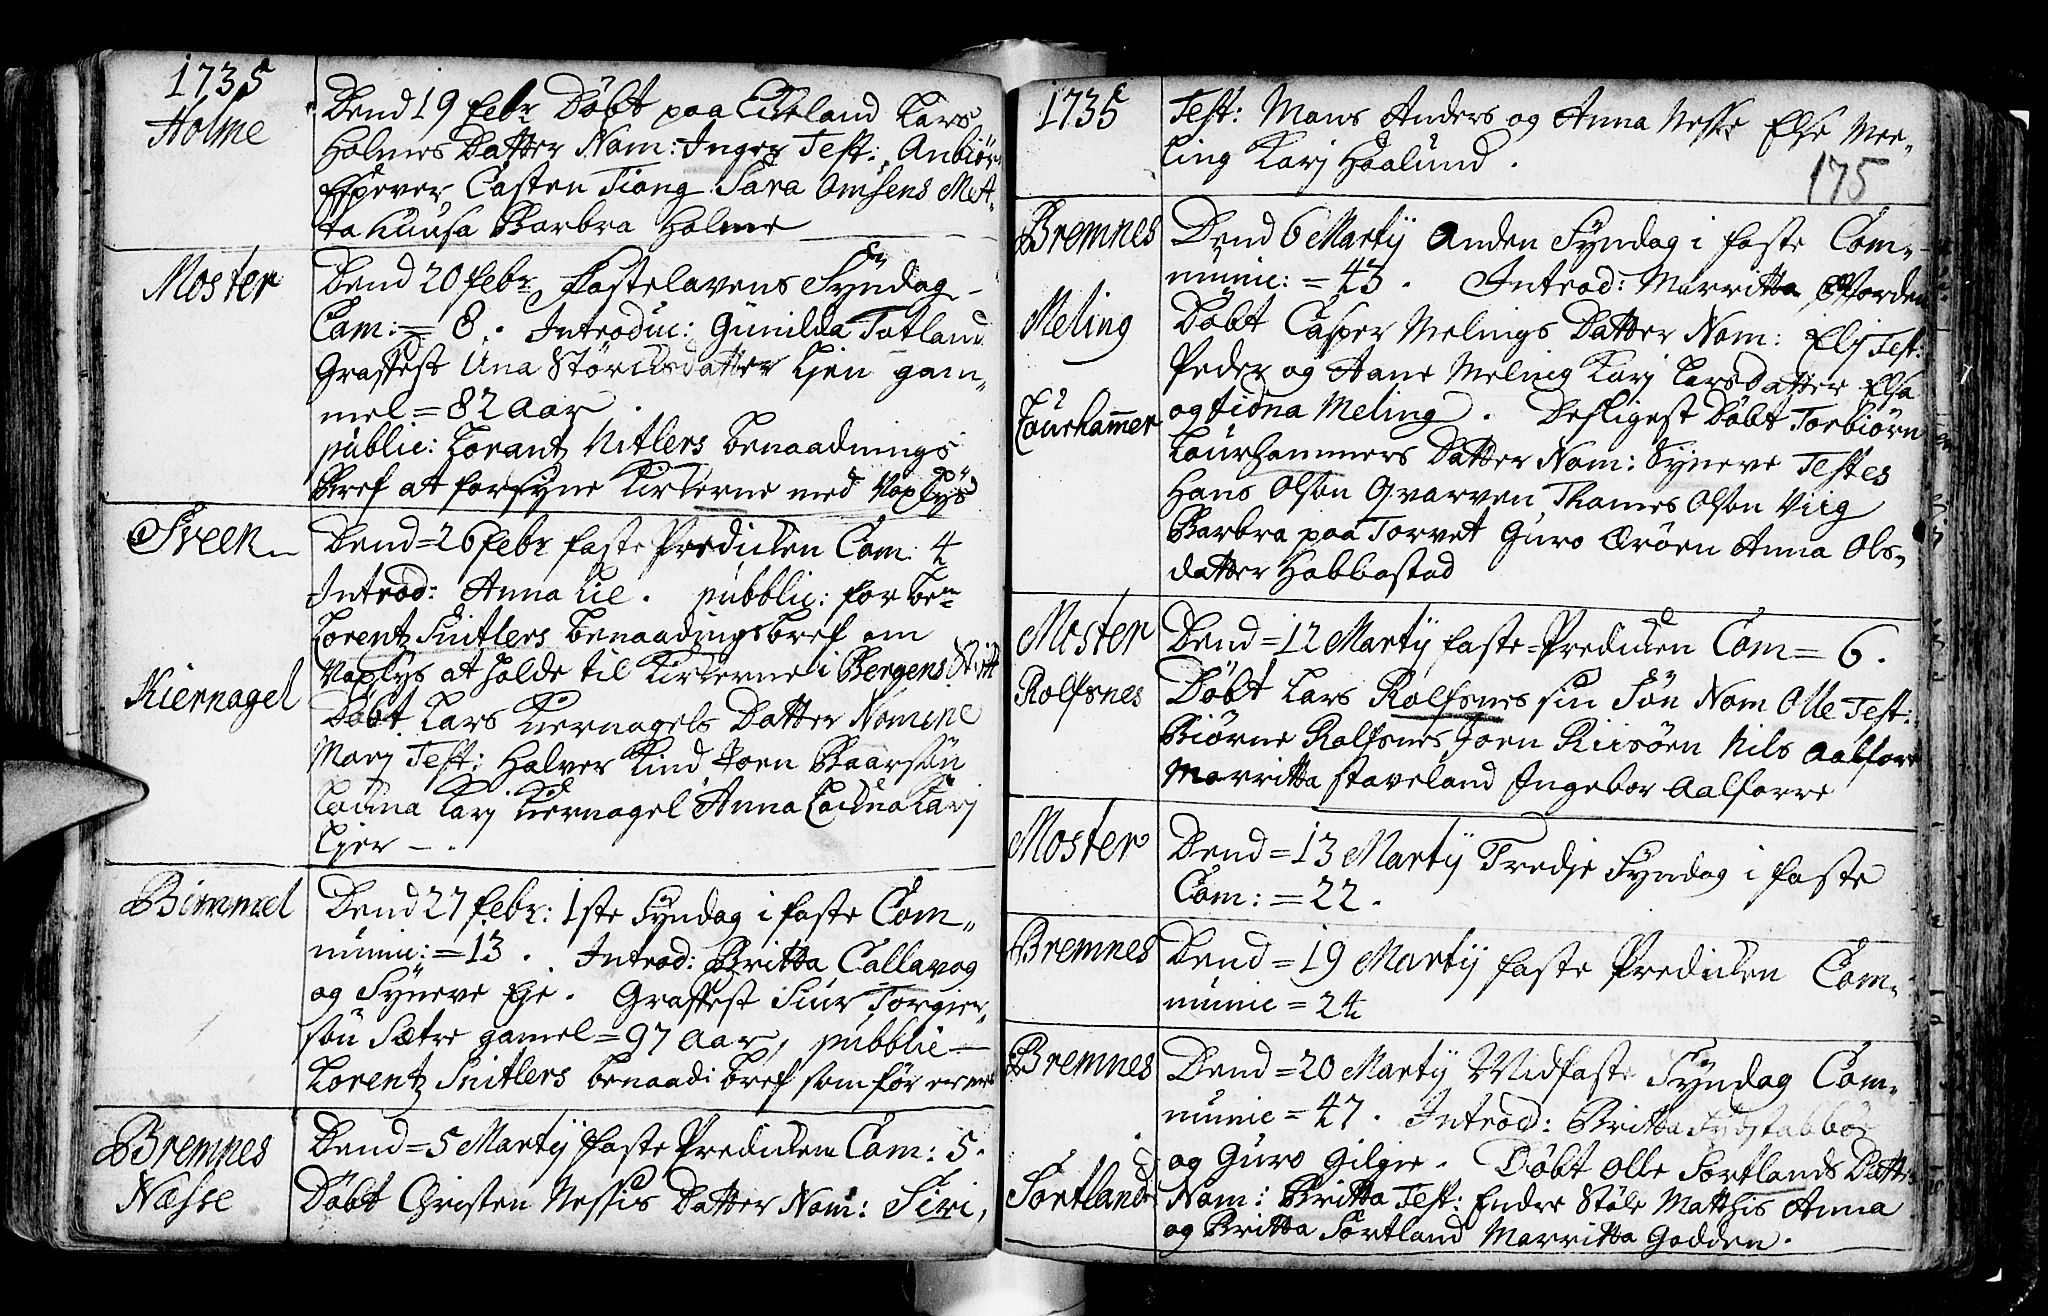 1735
Holme
Dend 19 febr Döbt paa Eikeland Lars
Holmes Datter Nom: Inger Test: Anbiör
Espever Casten Tiong Sara Omsens Met,,
ta Huusa Barbra Holme
Moster
Dend 20 febr Fastelavens Syndag
Com: = 8. Introduc: Gunilda Totland
Graffest Una Störchsdatter Lien gam,,
mel = 82 aar.
public: Lorantz Nitlers benaadnings
Bref at forsyne Kirkerne med Voxlys
Sveen
Dend = 26 febr faste Prediken Com: 4
Introd: Anna Lie. pubblic: for be
Lorentz Snitlers benaadingsbref om
Voxlys at holde til Kirkerne i Bergens Stift
Kiernagel
Döbt Lars Kiernagels Datter Nomine
Marj Test: Halver Lind Joen Baarsön
Karj Kiernagel Anna Karj
Lier -.
Bömmel
Dend 27 febr: 1ste Syndag i faste Com,,
munic: = 13. Introd: Britta Callavog
og Syneve Eje. Graffest Siur Torgier,,
sön Sætre gamel = 97 aar, pubblic
Lorentz Snitlers benaadi bref som för ermelt
Bremnes
Næsse
Dend = 5 Martij faste Prediken Com: 5.
Döbt Christen Nessis Datter Nom: Siri,
1735
Test: Mons Anders og Anna Nesse Else Mee,,
ling Karj Haalund.
175
Bremnes
Dend 6 Martij Anden Syndag i faste Com,,
munic: = 43. Introd: Marritta
Meling
Döbt Casper Melings Datter Nom: Elj Test:
Peder og Aane Meling Karj Larsdatter Elsa
Lourhammer
og Meling. Desligest Döbt Torbiörn
Lourhammers Datter Nom: Syneve Testes
Hans Olson Qvarven, Thomes Olson Viig
Barbra paa Torvet Guro Æröen Anna Ols,,
datter Habbastad
Moster
Dend = 12 Martij faste=Prediken Com = 6.
Rolfsnes
Döbt Lars Rolfsnes sin Sön Nom Olle Test:
Biörne Rolfsnes Joen Riisöen Nils Aalfore
Marritta Staveland Ingebor Aalforre
Moster
Dend = 13 Martij Tredje Syndag i faste
Com: = 22.
Bremnes
Dend = 19 Martij faste Prediken Com,,
munic = 24
Bremnes
Dend = 20 Martij Midfaste Syndag Com,,
munic = 47. Introd: Britta
og Guro Gilgie. Döbt Olle Sortlands Datt
Sortland
Nom: Britta Test: Endre Stöle Matthis Anna
og Britta Sortland Marritta Godden.